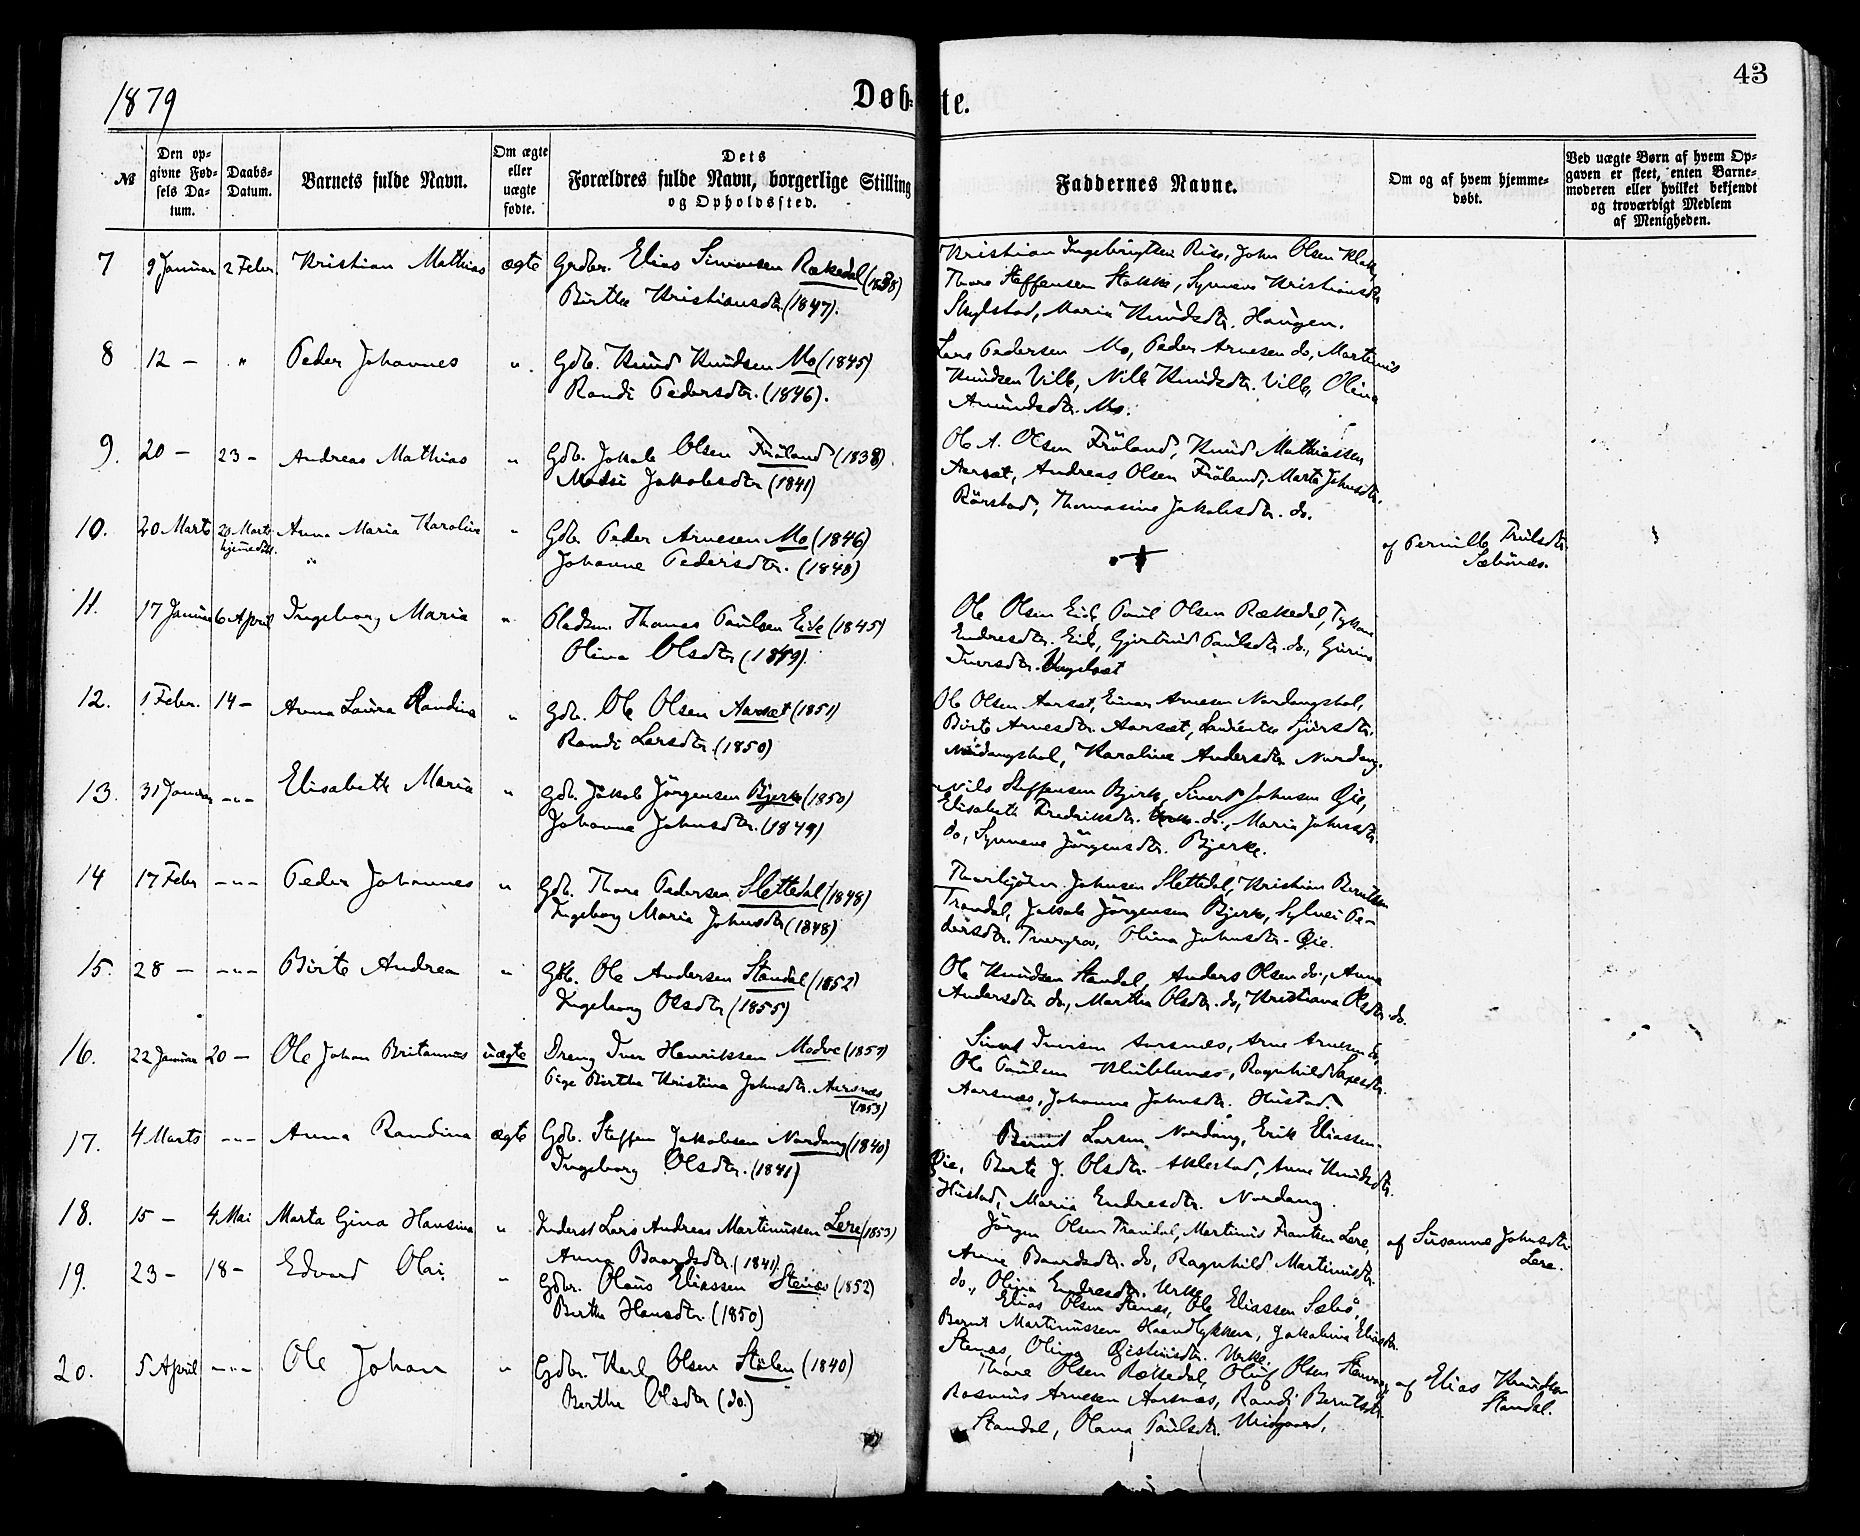 1879
Døbte.
43
№
Den opgivne Fødsels Datum.
Daabs-Datum.
Barnets fulde Navn.
Om ægte eller uægte fødte.
Dets Forældres fulde Navn, borgerlige Stilling og Opholdssted.
Faddernes Navne.
Om og af hvem hjemmedøbt.
Ved uægte Børn af hvem Opgaven er skeet, enten Barnemoderen eller hvilket bekjendt og troværdigt Medlem af Menigheden.
7 9 Januar 2 Febr. Kristian Mathias ægte Grdbr. Elias Simonsen Rækedal (1838)
Birthe Kristiansdtr. (1847).
Kristian Ingebrigtsen Riise, John Olsen Klok,
Thore Steffensen Stokke, Synneve Kristiansdtr
Skylstad, Maria Knudsdtr. Haugen.
8 12 – " Peder Johannes " Gdb. Knud Knudsen Mo (1845)
Randi Pedersdtr. (1846).
Lars Pedersen Mo, Peder Arnesen do, Martinus
Knudsen Villa, Nille Knudsdtr. Villa, Olina
Amundsdtr. Mo.
9. 20 – 23 – Andreas Mathias " Gdb. Jakob Olsen Fröland (1838)
Madsi Jakobsdtr (1841)
Ole A. Olsen Fröland, Knud Mathiassen
Aarset, Andreas Olsen Fröland, Marte Johnsdtr.
Rörstad, Thomasine Jakobsdtr. do.
10. 20 Marts 20 Marts hjemedöbt. Anna Maria Karoline " Gdb. Peder Arnesen Mo (1846)
Johanne Pedersdtr. (1848)
af Pernille Trulsdtr
Sæbönes.
11. 17 Januar 6 April Ingeborg Maria " Pladsm. Thomas Paulsen Eide (1845)
Olina Olsdtr (1849).
Ole Olsen Eide, Paul Olsen Rækedal,
Endresdtr. Eide, Gjertrud Paulsdtr. do., Gurine
Iversdtr.
12. 1 Febr. 14 – Anna Laura Randine " Gdb. Ole Olsen Aarset (1851)
Randi Larsdtr. (1850)
Ole Olsen Aarset, Einar Arnesen Nordangshol,
Birte Arnesdtr. Aarset, Laurentse Sjursdtr.
Nordangshol, Karoline Andersdtr Nordang.
13. 31 Januar –"– Elisabeth Maria " Gdb. Jakob Jörgensen Bjerke (1850)
Johanne Johnsdtr. (1849)
Nils Steffensen Bjerke, Sivert Johnsen Øie,
Elisabeth Fredriksdtr. do., Maria Johnsdtr.
do, Synneve Jörgensdtr. Bjerke.
14 17 Febr –"– Peder Johannes " Gdb. Thore Pedersen Slettedal (1848)
Ingeborg Maria Johnsdtr (1848)
Thorbjörn Johnsen Slettedal, Kristian Berntsen
Trandal, Jakob Jörgensen Bjerke, Sylvei Pe-
dersdtr. Tvergrov, Olina Johnsdtr. Øie.
15. 28 – –"– Birte Andrea " Gdb. Ole Andersen Standal (1852)
Ingeborg Olsdtr (1855)
Ole Knudsen Standal, Anders Olsen do., Anna
Andersdtr do, Marthe Olsdtr. do, Kristiana Olsdtr. do.
16. 22 Januar 20 – Ole Johan Britannus uægte Dreng Iver Henriksen Modve (1857)
Pige Birthe Kristina Johnsdtr. Aarsnes
(1853)
Sivert Iversen Aarsnes, Arne Arnesen do,
Ole Paulsen Klubbenes, Ragnhild Saxesdtr.
Aarsnes, Johanne Johnsdtr. Hustad.
17. 4 Marts –"– Anna Randina ægte Gdb. Steffen Jakobsen Nordang (1840)
Ingeborg Olsdtr. (1841)
Bernt Larsen Nordang, Erik Eliassen
Øie, Berte J. Olsdtr. Aklestad, Anne Knudsdtr.
Hustad, Maria Endresdtr. Nordang.
18. 15 – 4 Mai Marta Gina Hansina " Inderst Lars Andreas Martinussen Lere (1853)
Anna Baardsdtr. (1841)
Jörgen Olsen Trandal, Martinus Frantsen Lere,
Anne Baardsdtr. do, Ragnhild Martinusdtr.
do., Olina Endresdtr. Urke
af Susanne Johnsdtr.
Lere.
19. 23 – 18 – Edvard Olai " Gdbr. Olaus Eliassen Stenes (1852)
Berthe Hansdtr. (1850)
Elias Olsen Stenes, Ole Eliassen Sæbö,
Bernt Martinussen Haandlykken, Jakobine Eliasdtr.
Stenes, Olina Urke.
20. 5 April –"– Ole Johan " Gdbr. Karl Olsen Stölen (1840)
Berthe Olsdtr (do.)
Thore Olsen Rækedal, Oluf Olsen
Rasmus Arnesen Aarsnes, Randi Berntsdtr.
Standal, Olana Paulsdtr. Midgaard.
af Elias Knudsen
Standal.